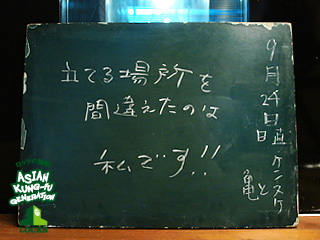 立てる場所を
間違えたのは
私です!!
9月24日日直・ケンスケと亀
ASIAN
KUNG-FU
GENERATION